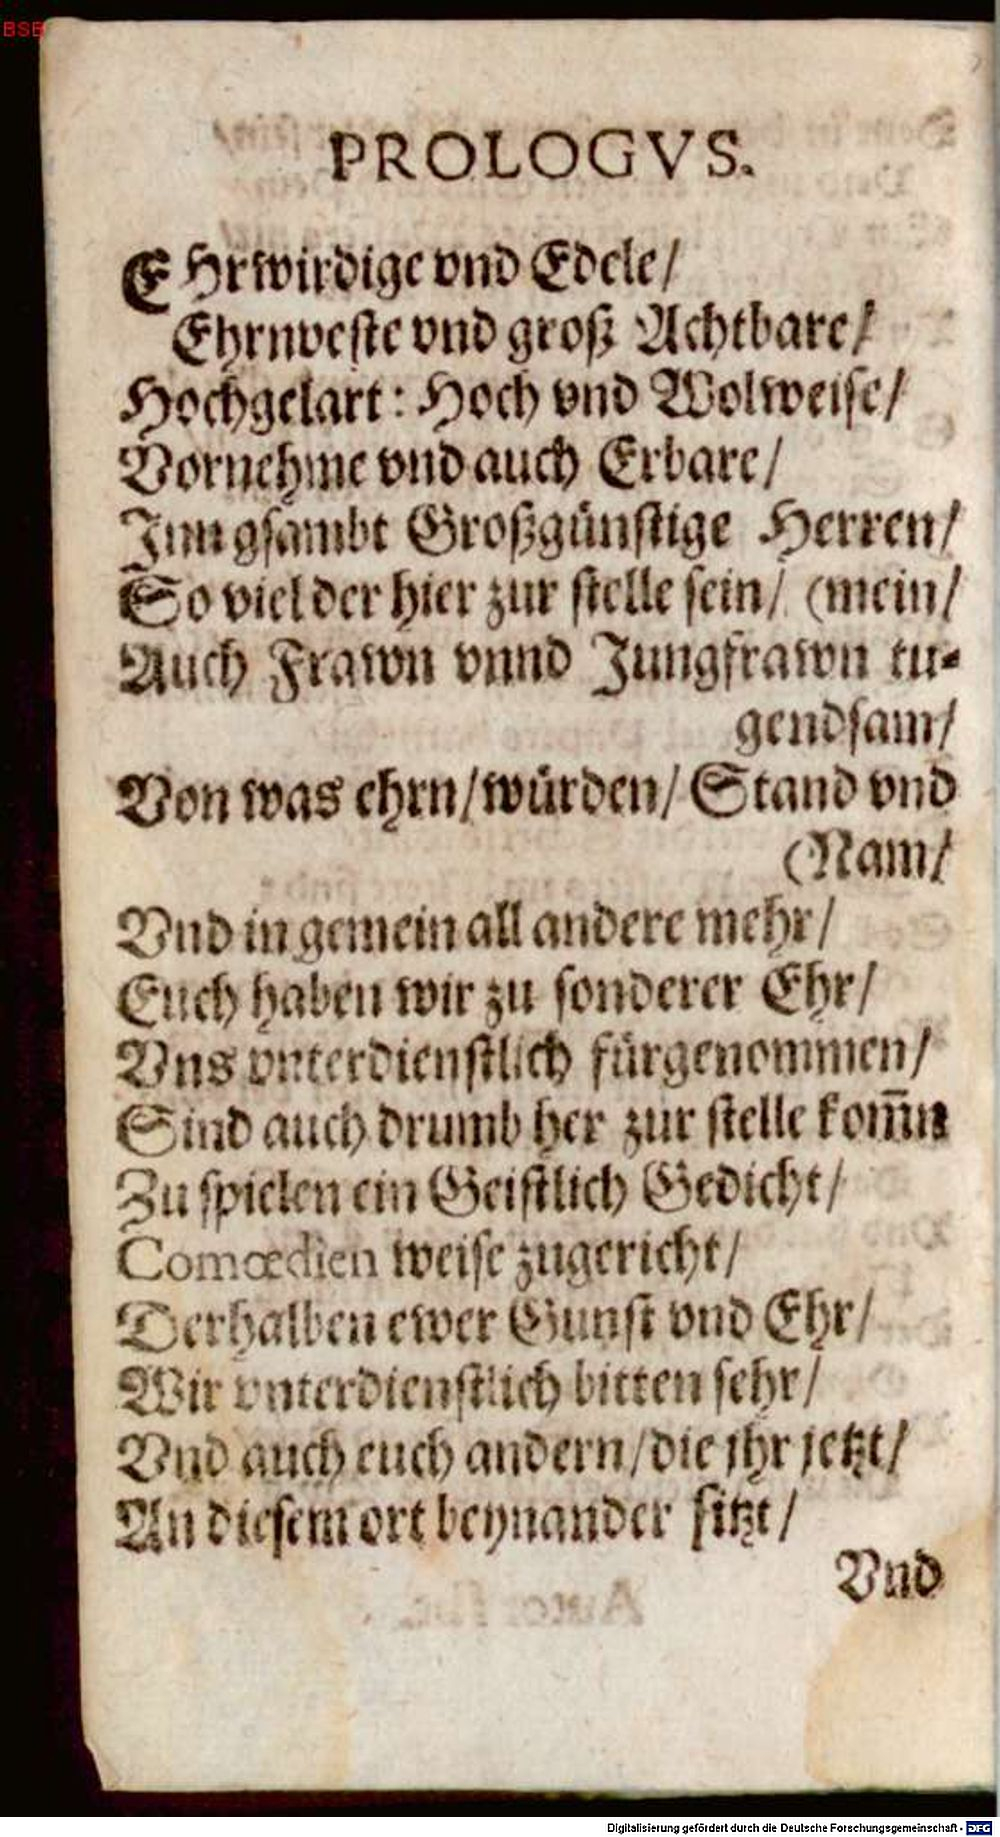 BSB
PROLOGVS.
EHrwirdige vnd Edele/
Ehrnveste vnd groß Achtbare/
Hochgelart: Hoch vnd Wolweise/
Vornehme vnd auch Erbare/
Inngsambt Großgünstige Herren/
So viel der hier zur stelle sein/ (mein/
Auch Frawn vnnd Jungfrawn tu-
gendsam/
Von was ehrn/würden/ Stand vnd
(Nam/
Vnd in gemein all andere mehr/
Euch haben wir zu sonderer Ehr/
Vns vnterdienstlich fürgenommen/
Sind auch drumb her zur stelle kom̃n
Zu spielen ein Geistlich Gedicht/
Comœdien weise zugericht/
Derhalben ewer Gunst vnd Ehr/
Wir vnterdienstlich bitten sehr/
Vnd auch euch andern/die jhr jetzt/
An diesem ort beynander sitzt/
Vnd
Digitalisierung gefördert durch die Deutsche Forschungsgemeinschaft - DFG